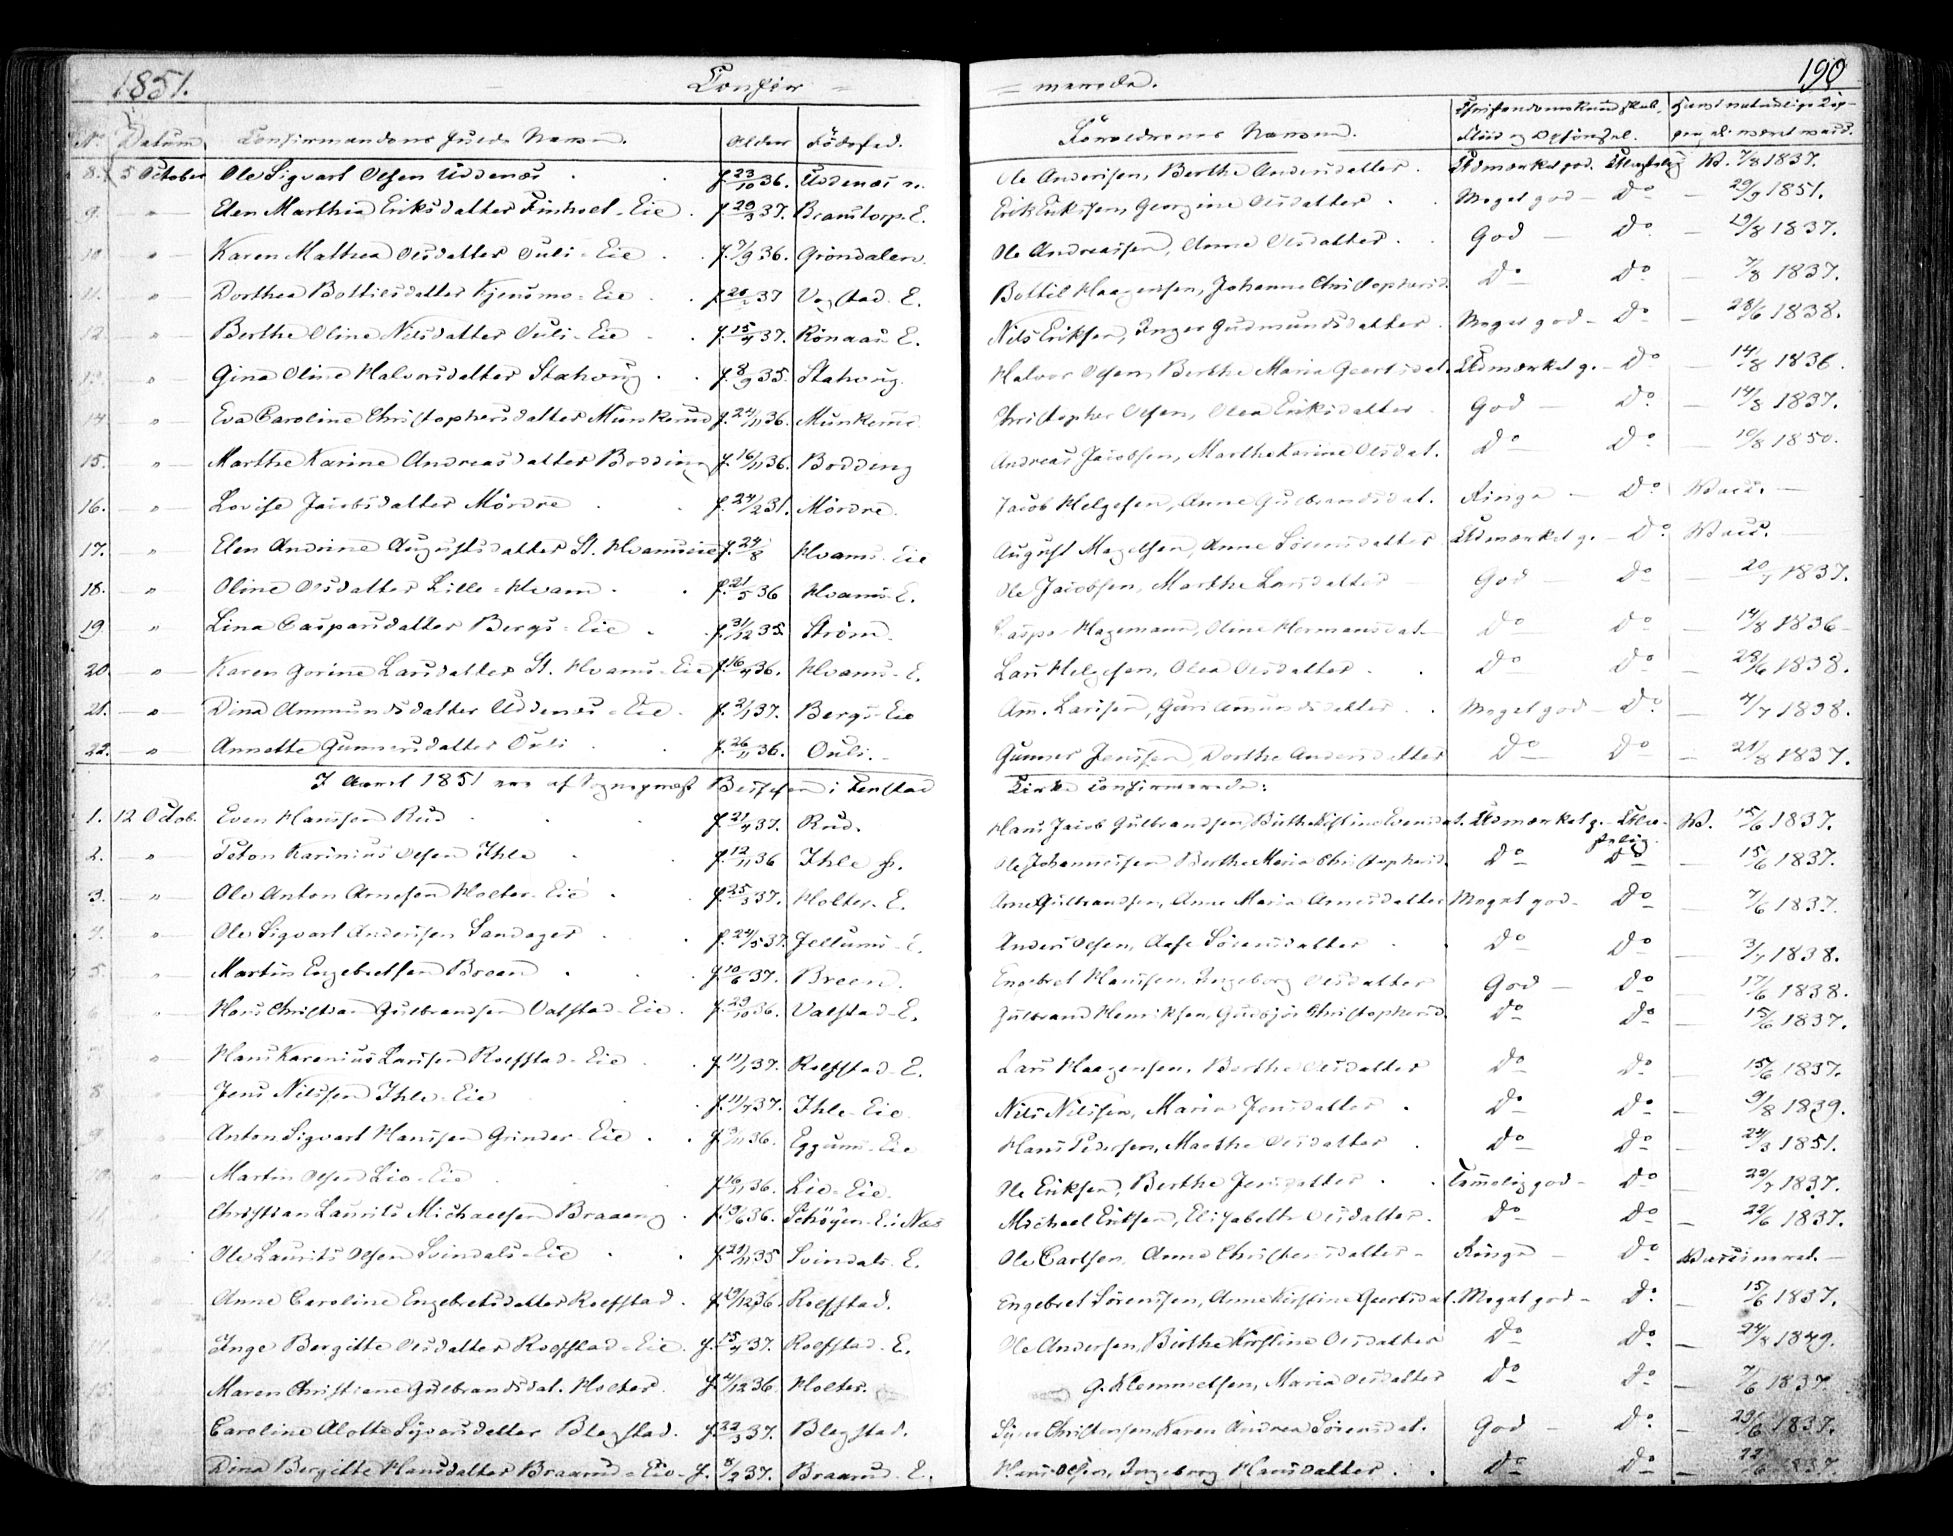 1851. Confir = = merede. 190
No Datum Confirmandens fulde Navn. Alder Födested. Foreldrenes Navne. Christendoms Kundskab. Flid og Opförsel.
8. 5 October Ole Sigvart Olsen Uddenæs f. 23/10 36. Uddenæs Ole Andersen, Berthe Andersdatter Udmærket god. V. 7/8 1837.
9. " Elen Marthea Eriksdatter Finholt-Eie f. 20/3 37. Branstorp E. Erik Eriksen, Georgine Olsdatter Meget god - Do - 29/9 1851.
10 " Karen Mathea Olsdatter Ouli-Eie f. 7/9 36. Gröndalen. Ole Andreassen, Anne Olsdatter God - Do - 19/8 1837.
11. " Dorthea Bottilsdatter Kjensmo-Eie 37 E. Bottil Haagensen, Johanne Christophersd. Do Do - 7/8 1837.
12 " Berthe Oline Nilsdatter Ouli-Eie f. 15/4 37. Rönaas E. Nils Eriksen, Inger Gudmundsdatter Meget god - Do - 28/6 1838.
13 " Gina Oline Halvorsdatter Stahvig f. 8/9 35. Stahvig. Halvor Olsen, Berthe Maria Geertsdat. Udmærket g. - Do - 14/8 1836.
14 " Eva Caroline Christophersdatter Munkerud f. 24/11 36. Munkerud Christopher Olsen, Olea Eriksdatter God - Do - 14/8 1837.
15. " Marthe Karine Andreasdatter Bodding f. 16/11 36. Bodding Andreas Jacobsen, Marthe Karine Olsdat. Do Do - 10/8 1850.
16. " Lovise Jacobsdatter Mördre f. 24/2 31. Mördre. Jacob Helgesen, Anne Gulbrandsdat. Ringe - Do Vacc. -
17. " Elen Andrine Augustsdatter St. Hvamseie f. 24/8 Hvams-Eie August Magelsen, Anne Sörensdatter Udmærket g. - Do Vacc.
18. " Oline Olsdatter Lille-Hvam f. 21/5 36 Hvams-E. Ole Jacobsen, Marthe Larsdatter God - Do 20/7 1837.
19 " Lina Caspersdatter Bergs-Eie f. 31/12 35. Ström. Casper Hagemann, Oline Hermansdat. Do Do - 14/8 1836
20. " Karen Gorine Larsdatter St. Hvams-Eie f. 16/4 36. Hvams-E. Lars Helgesen, Olea Olsdatter Do Do - 28/6 1838.
21. " Dina Ammundsdatter Uddenæs-Eie f. 2/1 37. Bergs-Eie Am. Larsen, Guri Amundsdatter Meget god - Do - 4/7 1838.
22. " Annette Gunnersdatter Ouli f. 26/11 36. Ouli. Gunner Jensen, Dorthe Andersdatter Do Do - 21/8 1837.
I April 1851 ere af Sognepræst i Fenstad Kirke confirmerede:
1. 12 Octob. Even Hansen Rud f. 21/4 37. Rud. Hans Jacob Gulbrandsen, Birthe Kirstine Evensdat. Udmærket g. - V. 15/6 1837.
2. " Peter Karinius Olsen Ihle f. 12/11 36 Ihle Ole Johannesen Berthe Maria Christophersd. Do Do - 15/6 1837.
3. " Ole Anton Arnesen Holter-Eie f. 25/3 37. Holter-E. Arne Gulbrandsen, Anne Maria Arnesdatter Meget god - Do - 7/6 1837.
4. " Ole Sigvart Andersen Sandager f. 24/5 37. Jellums-E. Anders Olsen, Aase Sörensdatter Do Do - 3/7 1838.
5. " Martin Engebretsen Breen f. 10/6 37. Breen. Engebret Hansen, Ingeborg Olsdatter God - Do - 17/6 1838.
6 " Hans Christian Gulbrandsen Valstad-Eie f. 29/10 36. Valstad-E. Gulbrand Henriksen, Christophersd. Do Do - 15/6 1837.
7 " Hans Karenius Larsen Roefstad-Eie f. 11/1 37. Roefstad-E. Lars Haagensen, Berthe Olsdatter Do Do - 15/6 1837.
8 Jens Nilssen Ihle-Eie f. 11/4 37. Ihle-Eie Nils Nilssen, Maria Jensdatter Do Do - 9/8 1839.
9 " Anton Sigvart Hansen Grinder-Eie 36. Eggums-Eie Hans Pedersen, Marthe Olsdatter Do Do - 24/3 1851.
10. Martin Olsen Lie-Eie f. 16/11 36. Lie-Eie. Ole Eriksen, Berthe Jensdatter Temmelig god - Do - 22/7 1837.
11 Christian Laurits Michaelsen Braaeng f. 19/6 36. Schöyen-E. i Næs Michael Eriksen, Elisabeth Olsdatter. Do Do - 22/6 1837.
12 Ole Laurits Olsen Svindals-Eie f. 21/11 35 Svindals-E. Ole Carlsen, Anne Christensdatter Ringe - Do Vaccineret. -
Anne Caroline Engebretsdatter Roefstad f. 19/12 36. Roefstad. Engebret Sörensen, Anne Kirstine Geertsdat. Meget god - Do - 15/6 1837.
Inge Bergitte Olsdatter Roefstad-Eie f. 15/4 37. Roefstad-E. Ole Andersen, Birthe Kirstine Olsdatter Do Do - 24/8 1849.
15. Maren Christiane Gulbrandsdat. Holter 36. Holter. G. Klemmetsen, Maria Olsdatter Do Do - 7/6 1837.
Caroline Alette Syversdatter Blegstad. f. 22/3 37. Blegstad. Syver Christensen, Karen Andrea Sörensdat. God - Do - 29/6 1837.
Dina Bergitte Hansdatter Braarud-Eie f. 5/2 37. Braarud-E. Hans Olsen, Ingeborg Hansdatter Do Do - 22/6 1837.